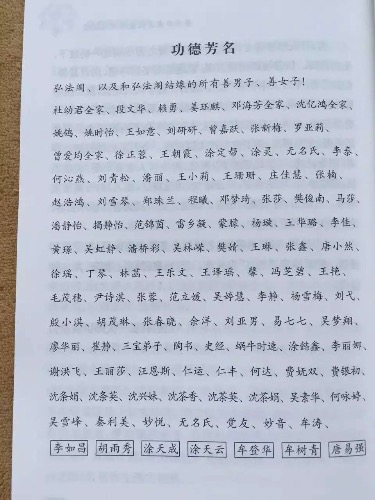 功德芳名
弘法阁、以及和弘法阁结缘的所有善男子、善女子！
社幼君全家、段文华、赖勇、姜环麒、邓海芳全家、沈亿鸿全家、
姚鸽、姚时怡、王如意、刘研研、曾嘉跃、张新梅、罗亚莉、
曾爱均全家、徐正蓉、王朝霞、涂定帮、涂灵、无名氏、李泰、
何沁燕、刘青松、潘丽、王小莉、王珊珊、庄佳慧、张楠、
赵浩鸿、刘雪琴、郑珠兰、程曦、邓梦琦、张莎、樊俊南、马莎、
潘静怡、揭静怡、范锦茵、雷乡凝、蒙稼、杨璇、王华璐、李佳、
黄璟、吴虹静、潘桥彩、吴林嵘、樊婧、王琳、张鑫、唐小然、
徐瑶、丁琴、林蕊、王乐文、王译瑶、馨、冯芝第、王艳、
毛茂德、尹诗淇、张蓉、范立媛、吴婷慧、李静、杨雪梅、刘弋、
殷小淇、胡茂琳、张春晓、余洋、刘亚男、易七七、吴梦翔、
廖华丽、崔静、三宝弟子、陶书、史经、蜗牛时速、涂懿鑫、李丽娜、
谢洪飞、王丽莎、汪恩斯、仁运、仁丰、何达、费妩双、费银初、
沈条娟、沈条英、沈兴妹、沈茶香、沈茶英、沈茶娟、吴素华、何咏婷、
吴雪峰、秦利美、妙悦、无名氏、觉友、妙音、牟涛、
李如昌 胡雨秀 涂天成 涂天云 牟登华 牟树青 唐易强